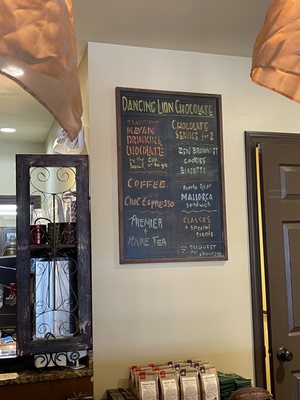 Dancing Lion Chocolate
Traditional
Mayan
Drinking
Chocolate
by the cup
to go
Coffee
Choc Espresso
Premier
+
Rare Tea
Chocolate
Service for 2
Brownies
Cookies
Biscotti
Puerto Rican
Mallorca
Sandwich
Classes
+ special
events